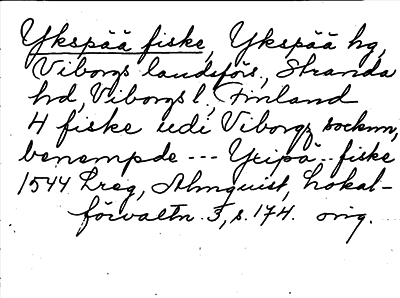 Ykspää fiske, Ykspää hg,
Viborgs landsförs., Stranda
hd, Viborgs l, Finland
4 fiske udi Viborgz socknn,
benempde --- Yxipä.. fiske
1544 Lreg, Almquist, Lokal-
förvaltn. 3, s. 174. orig.